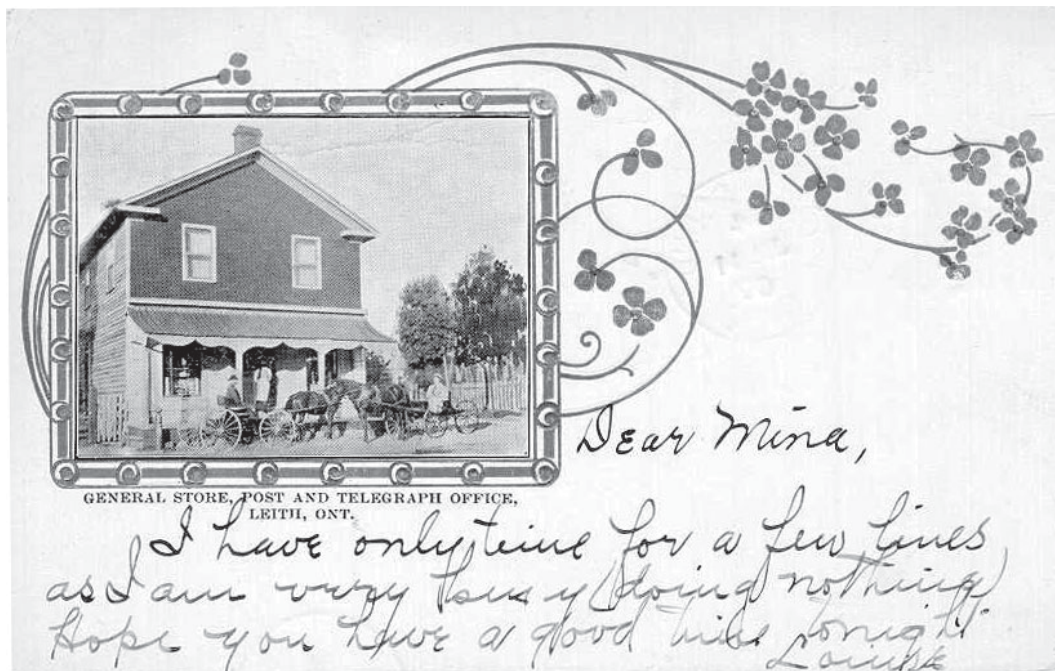 GENERAL STORE, POST AND TELEGRAPH OFFICE,
LEITH, ONT.
Dear Mina,
I have only time for a few lines
as I am very busy (doing nothing)
Hope you have a good time tonight
Louise